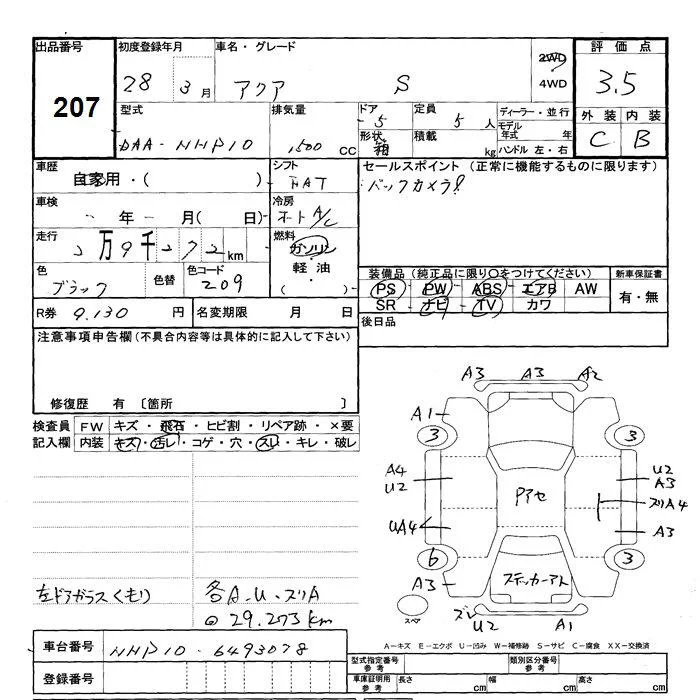 出品番号 初度登録年月 車名・グレード 2WD 4WD 評価点
207 28 3月 アクア S 3.5
型式 排気量 ドア 5 定員 5人 ディーラー・並行 外装 内装
DAA-NHP10 1,500 CC 形状 箱 積載 kg モデル年式 年 ハンドル 左・右 C B
車歴 自家用・( ) シフト FAT セールスポイント (正常に機能するものに限ります)
車検 - 年 - 月( 日) 冷房 オートA/C バックカメラ!
走行 2万9千272km 燃料 ガソリン・軽油・( )
色 ブラック 色替 色コード 209
装備品 (純正品に限り○をつけてください) 新車保証書
PS PW ABS エアB AW 有・無
SR ナビ TV カワ
R券 9.130 円 名変期限 月 日 後日品
注意事項申告欄 (不具合内容等は具体的に記入して下さい)
修復歴 有 〔箇所 〕
検査員 FW キズ・飛石・ヒビ割・リペア跡・×要
記入欄 内装 キズ・汚レ・コゲ・穴・スレ・キレ・破レ
A3 A3 A2
A1
3 3
A4 U2 U2 A3
Pアセ
スリA4
UA4 A3
6 3
A3 ステッカーアト
スペア ズレ U2 A1
左ドアガラスくもり 各A・U・スリA
◎29.273km
A-キズ E-エクボ U-凹み W-補修跡 S-サビ C-腐食 XX-交換済
車台番号 NHP10-6493078
登録番号
型式指定番号 参考 類別区分番号 参考
車庫証明用 参考 長さ cm 幅 cm 高さ cm